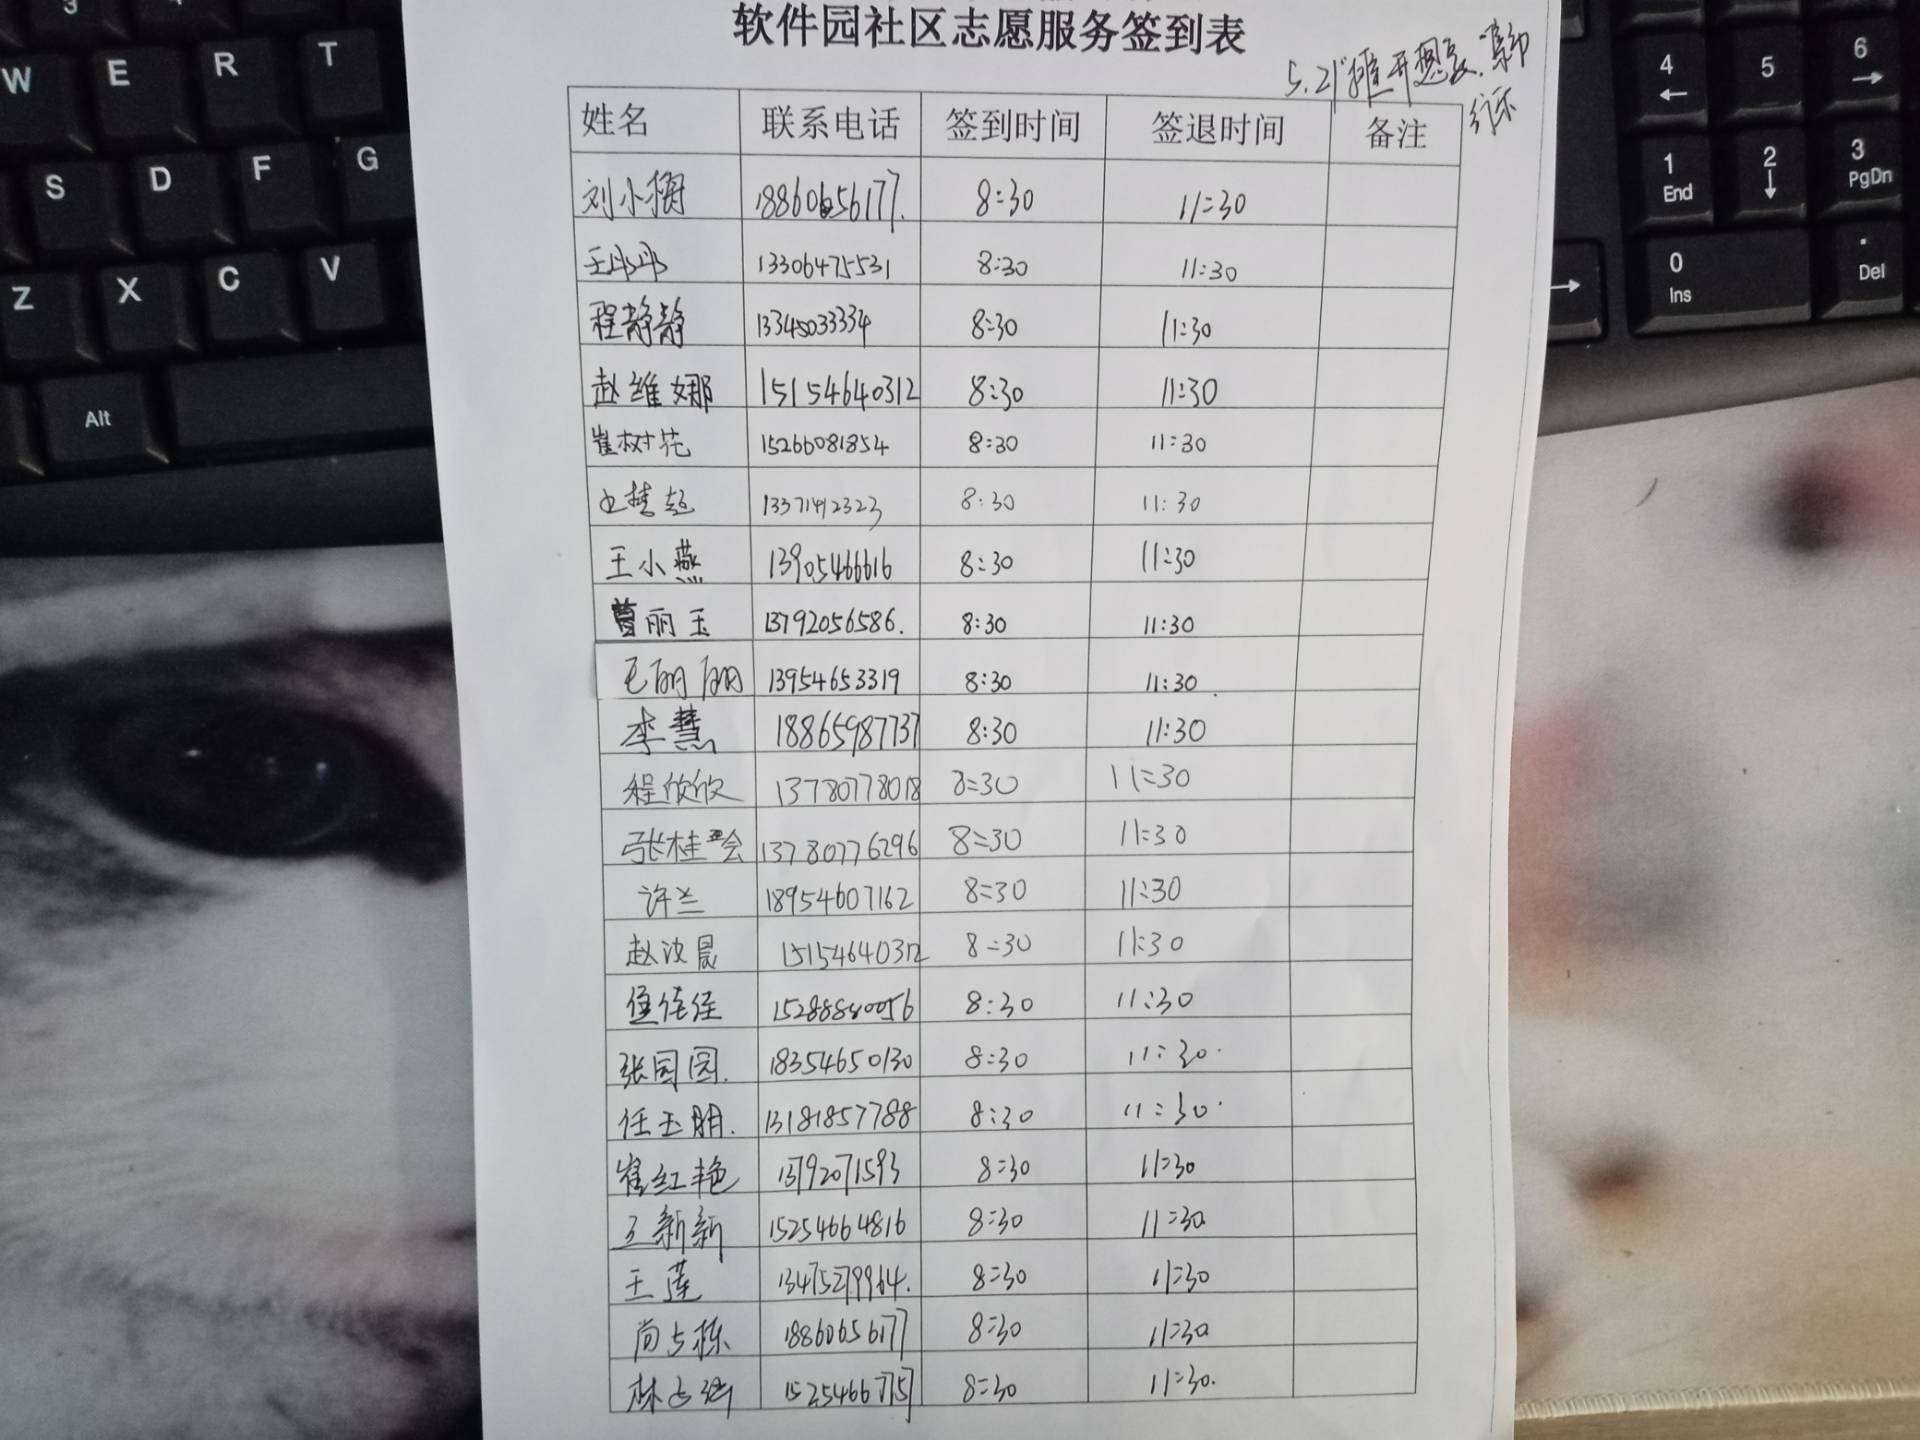 软件园社区志愿服务签到表
5.21
姓名 联系电话 签到时间 签退时间 备注
刘小梅 18860656177. 8:30 11:30
王彤彤 13306475531 8:30 11:30
程静静 13345033334 8:30 11:30
赵维娜 15154640312 8:30 11:30
崔树花 15266081854 8:30 11:30
13371412323 8:30 11:30
王小燕 13905466616 8:30 11:30
曹丽玉 13792056586. 8:30 11:30
毛丽丽 13954653319 8:30 11:30
李慧 18865987737 8:30 11:30
程欣欣 13780778018 8:30 11:30
张桂 13780776296 8:30 11:30
许兰 18954607162 8:30 11:30
赵汝晨 15154640312 8:30 11:30
佳佳 15288880056 8:30 11:30
张园园. 18354650130 8:30 11:30.
任玉朋. 13181857788 8:30 11:30.
崔红艳 13792071593 8:30 11:30
王新新 15254664816 8:30 11:30
王莲 13475279964. 8:30 11:30
尚栋 18860656177 8:30 11:30
林 15254667757 8:30 11:30.
W E R T
S D F G
Z X C V
Alt
4 5 6
1 End 2 3 PgDn
0 Ins . Del